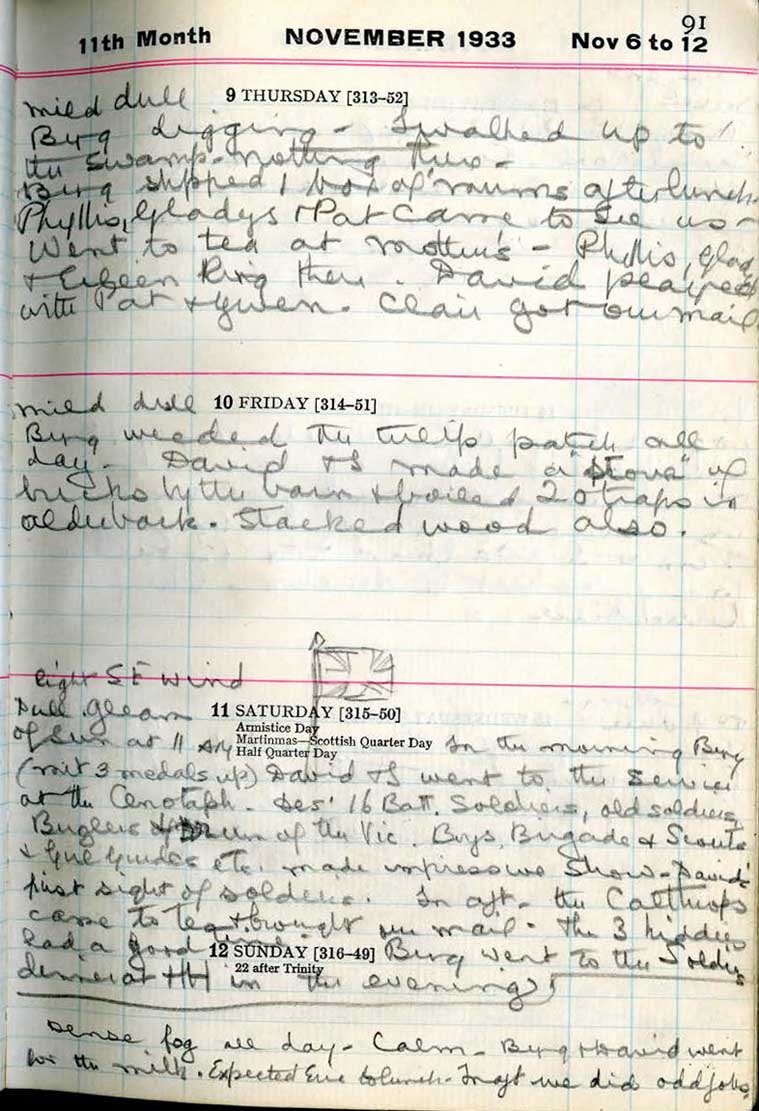 91
11th Month NOVEMBER 1933 Nov 6 to 12
mild dull 9 THURSDAY [313–52]
Berg digging - I walked up to
the Swamp - nothing there -
Berg shipped 1 box of 'mums after lunch.
Phyllis, Gladys + Pat came to see us -
Went to tea at mother's - Phyllis, Glad
+ Eileen King there. David played
with Pat + Gwen. Clair got our mail
mild dull 10 FRIDAY [314–51]
Berg weeded the tulip patch all
day. David + I made a "stove" of
bricks by the barn + boiled 20 traps in
alder bark. Stacked wood also.
light S E wind
Dull gleam 11 SATURDAY [315–50]
Armistice Day
Martinmas—Scottish Quarter Day
Half Quarter Day
of sun at 11 In the morning Berg
(with 3 medals up) David + I went to the Service
at the Cenotaph. 16 Batt. Soldiers, old soldiers,
Buglers of the Vic. Boys Brigade + Scouts
+ Girl Guides etc. made impressive show - David's
first sight of soldiers. In aft. the Calthrops
came to tea + brought our mail. The 3 kiddies
had a good
12 SUNDAY [316–49] Berg went to the Soldiers
22 after Trinity
dinner at HH in the evening
Dense fog all day - Calm - Berg + David went
for the milk. Expected to lunch - In aft we did odd jobs